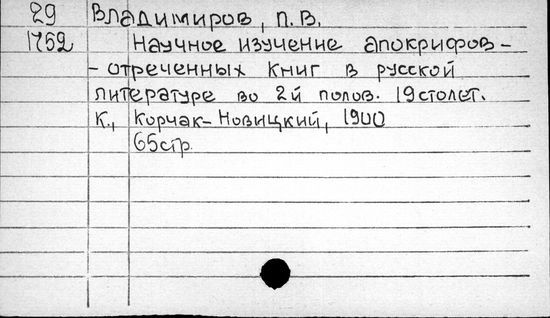 29 Владимиров, П. В.
1752 Научное изучение апокрифов -
- отреченных книг в русской
литературе во 2й полов. 19 столет.
К., Корчак-Новицкий, 1900
65 стр.